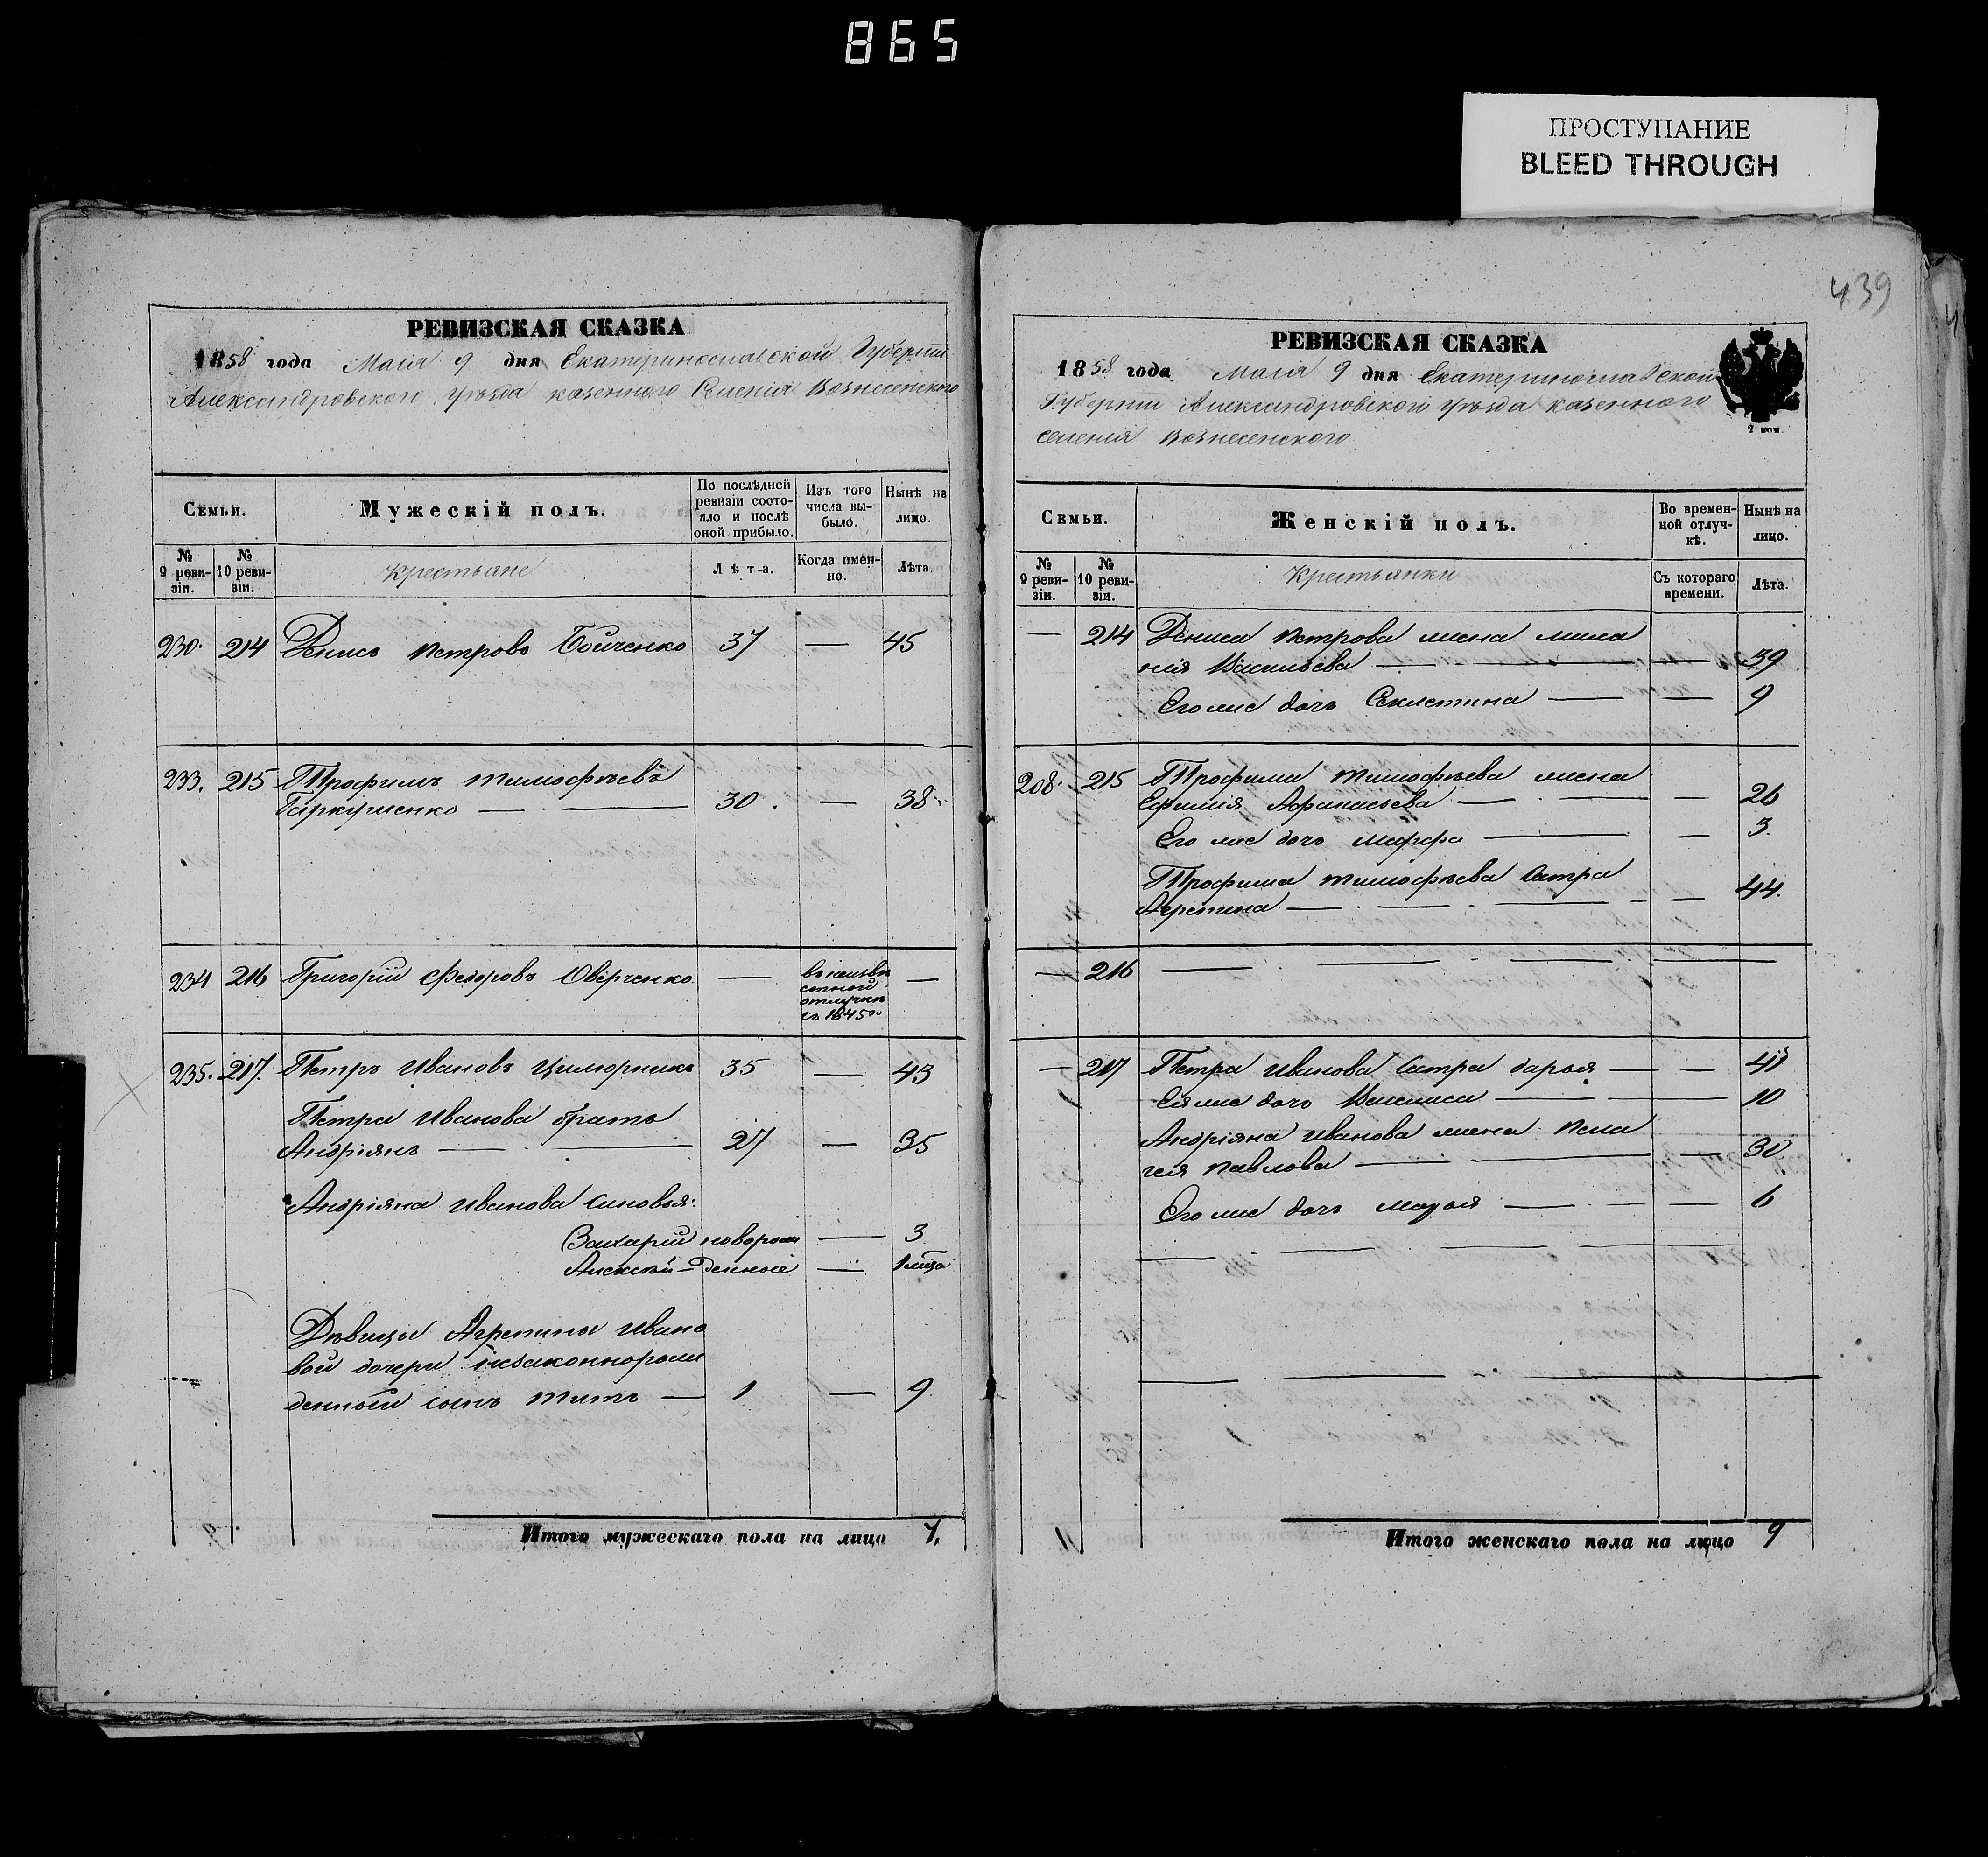 865
ПРОСТУПАНИЕ
BLEED THROUGH
439
РЕВИЗСКАЯ СКАЗКА
1858 года Маія 9 дня Екатеринославской Губерніи
Александровского уѣзда казенного Селенія Вознесенского
Семьи.
Мужескій полъ.
По послѣдней ревизіи состояло и послѣ оной прибыло.
Изъ того числа выбыло.
Нынѣ на лицо.
№ 9 ревизіи.
№ 10 ревизіи.
Крестьяне
Лѣта.
Когда именно.
Лѣта.
230. 214 Денисъ Петровъ Бойченко 37 — 45
233. 215 Трофимъ Тимофѣевъ
Гаркушенко — 30. — 38
234 216 Григорій Федоровъ Оверченко — въ неизвѣ
стной
отлучкѣ
съ 1845го —
235. 217. Петръ Ивановъ 35 — 43
Петра Иванова братъ
Андріянъ — 27 — 35
Андріяна Иванова сыновья:
Захарій новорож — 3
Алексѣй — денные — 1 мѣсца
Дѣвицы Агрепины Ивано
вой дочери незаконнорож
денный сынъ Титъ — 1 — 9
Итого мужескаго пола на лицо 7.
РЕВИЗСКАЯ СКАЗКА
1858 года Маія 9 дня Екатеринославской
Губерніи Александровского уѣзда казенного
селенія Вознесенского
Семьи.
Женскій полъ.
Во временной отлучкѣ.
Нынѣ на лицо.
№ 9 ревизіи.
№ 10 ревизіи.
Крестьянки
Съ котораго времени.
Лѣта.
— 214 Дениса Петрова жена Мила
нія Васильева — — 39
Его же дочь Секлетина — — 9
208. 215 Трофима Тимофѣева жена
Ефимія Афанасьева — — 26
Его же дочь Марфа — — 3.
Трофима Тимофѣева сестра
Агрепина — — 44.
— 216 —
— 217 Петра Иванова сестра Дарья — — 41
Ея же дочь Василиса — — 10
Андріяна Иванова жена Пела
гея Павлова — — 30
Его же дочь Марья — — 6
Итого женскаго пола на лицо 9